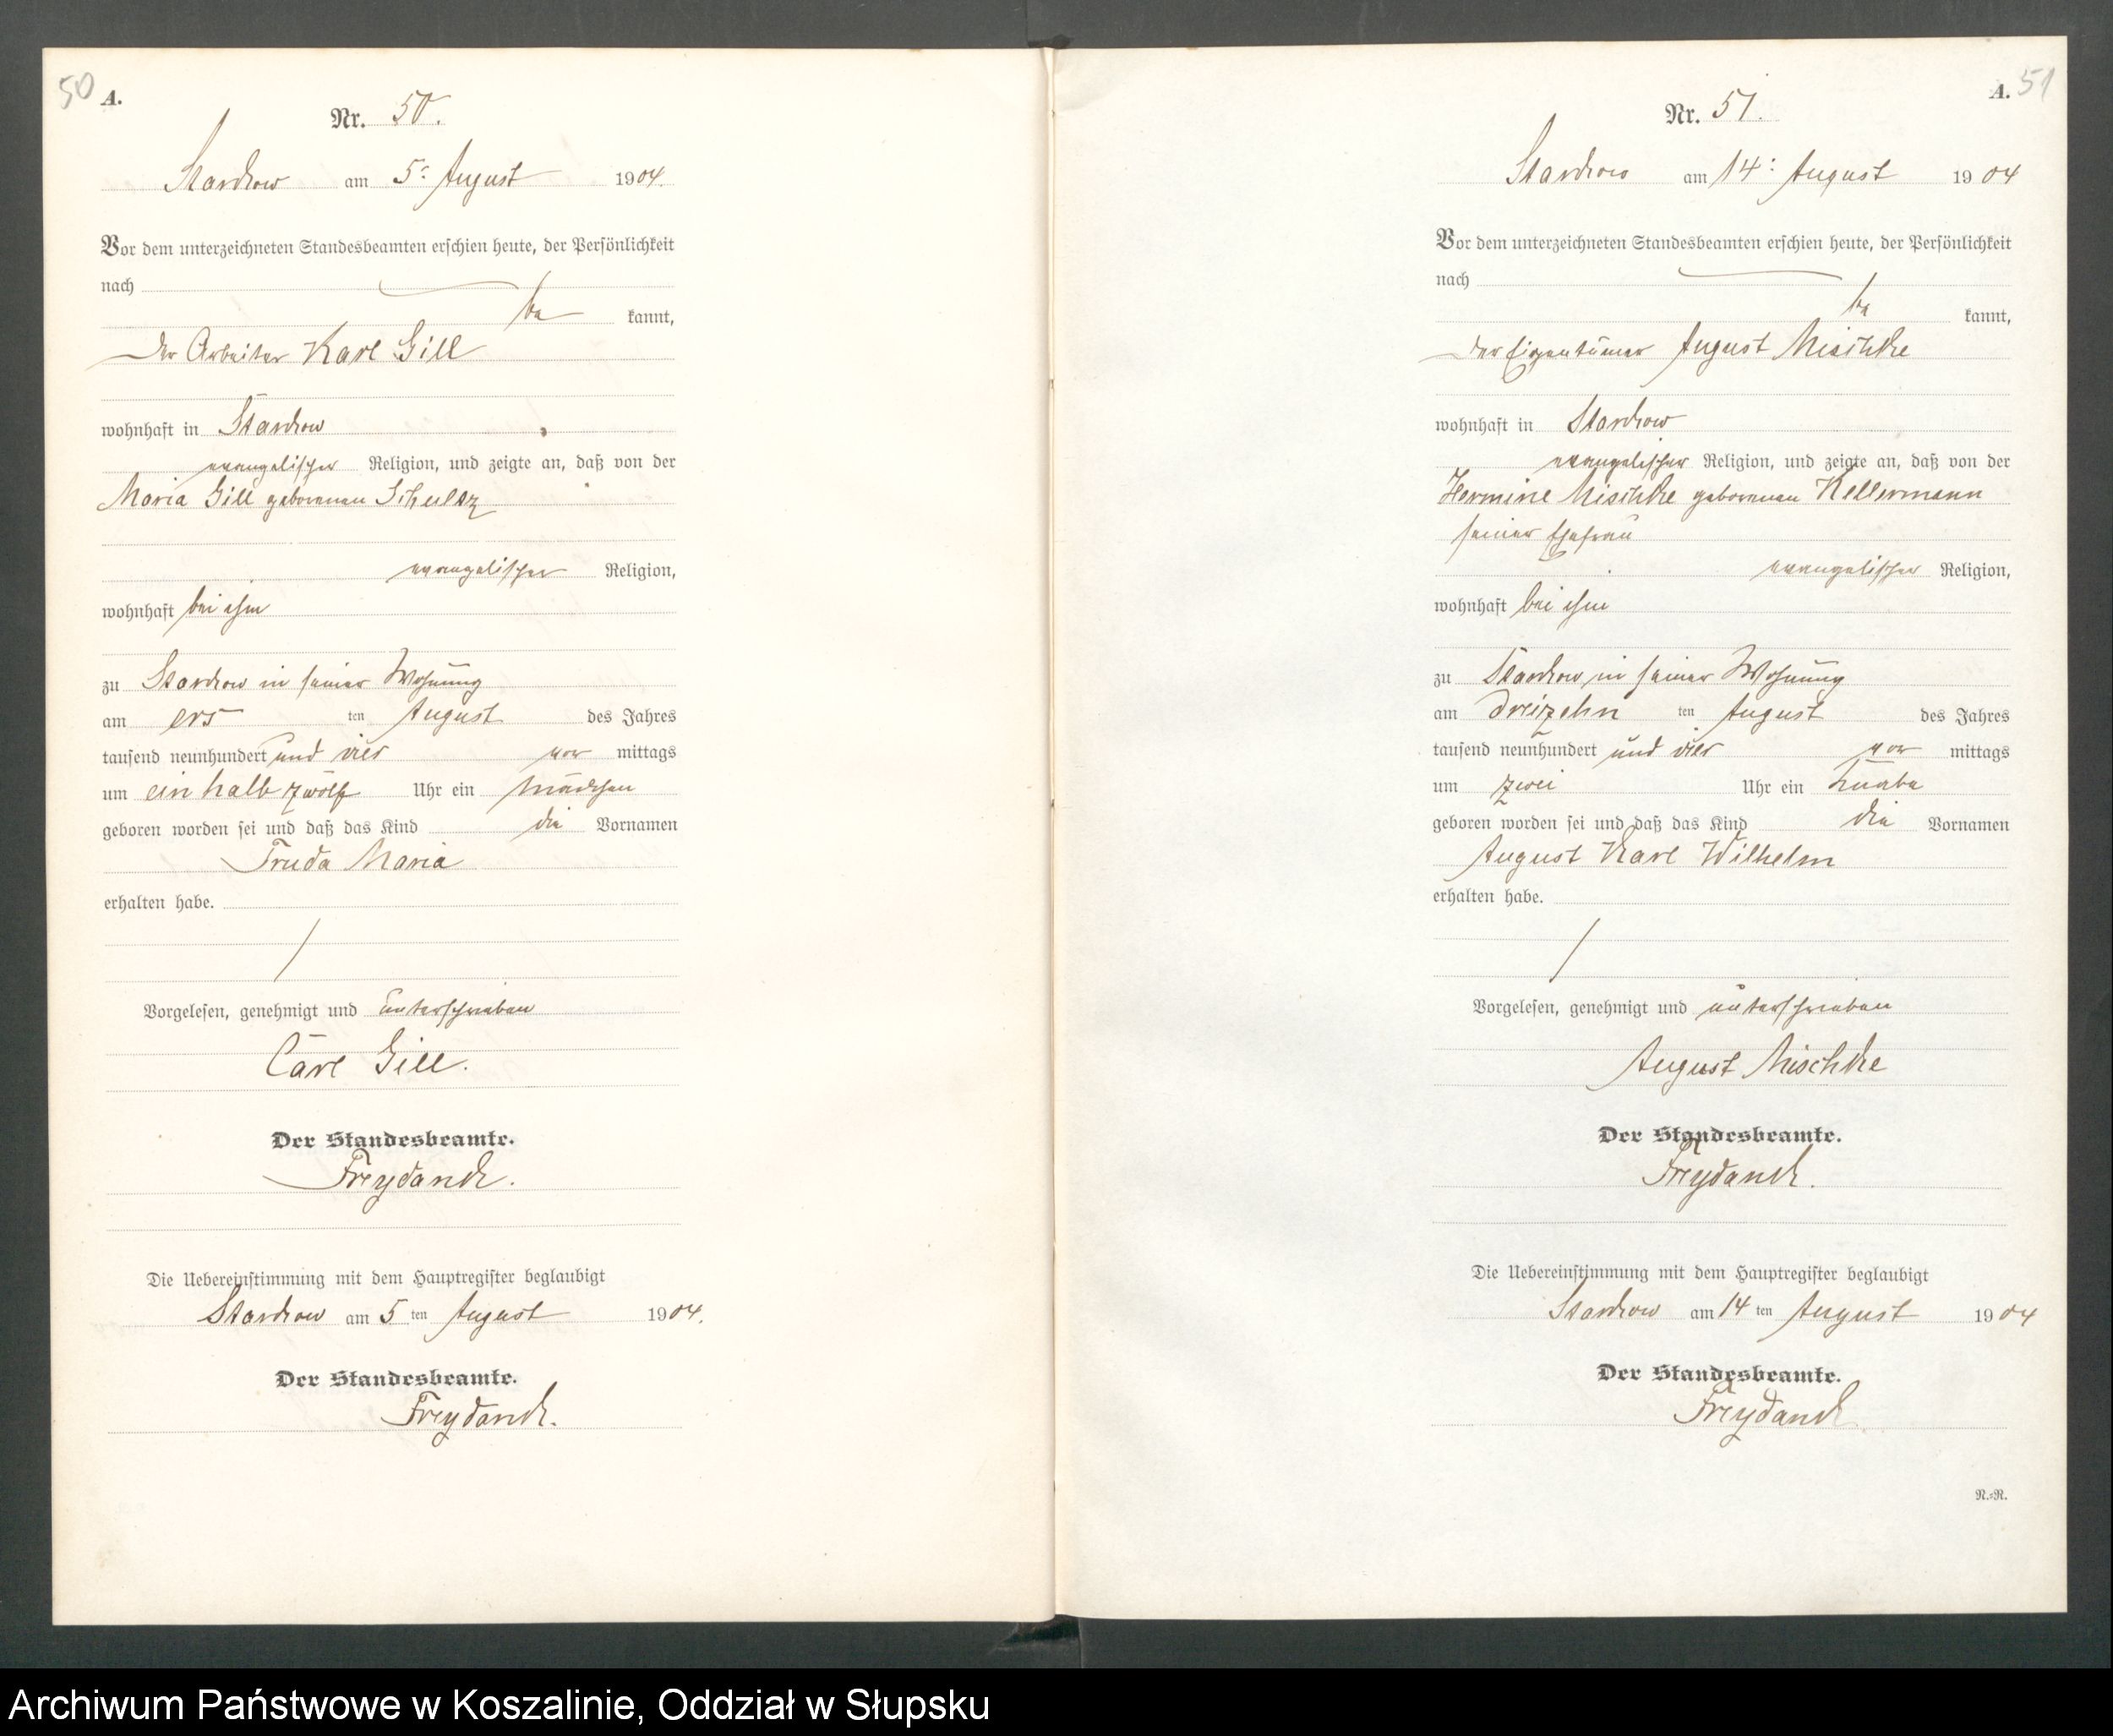 50 A.
Nr. 50.
Starckow am 5t August 1904.
Vor dem unterzeichneten Standesbeamten erschien heute, der Persönlichkeit
nach
be kannt,
der Arbeiter Karl Gill
wohnhaft in Starckow
evangelischer Religion, und zeigte an, daß von der
Maria Gill geborenen Schulz
evangelischer Religion,
wohnhaft bei ihm
zu Starckow in seiner Wohnung
am ers ten August des Jahres
tausend neunhundert und vier vor mittags
um ein halb zwölf Uhr ein Mädchen
geboren worden sei und daß das Kind die Vornamen
Truda Maria
erhalten habe.
Vorgelesen, genehmigt und unterschrieben
Carl Gill.
Der Standesbeamte.
Freydanck.
Die Uebereinstimmung mit dem Hauptregister beglaubigt
Starckow am 5 ten August 1904.
Der Standesbeamte.
Freydanck.
A. 51
Nr. 51.
Starckow am 14t August 1904
Vor dem unterzeichneten Standesbeamten erschien heute, der Persönlichkeit
nach
be kannt,
der Eigentümer August Mischke
wohnhaft in Starckow
evangelischer Religion, und zeigte an, daß von der
Hermine Mischke geborenen Kellermann
seiner Ehefrau
evangelischer Religion,
wohnhaft bei ihm
zu Starckow in seiner Wohnung
am dreizehn ten August des Jahres
tausend neunhundert und vier vor mittags
um zwei Uhr ein Knabe
geboren worden sei und daß das Kind die Vornamen
August Karl Wilhelm
erhalten habe.
Vorgelesen, genehmigt und unterschrieben
August Mischke
Der Standesbeamte.
Freydanck.
Die Uebereinstimmung mit dem Hauptregister beglaubigt
Starckow am 14 ten August 1904
Der Standesbeamte.
Freydanck
N.=R.
Archiwum Państwowe w Koszalinie, Oddział w Słupsku